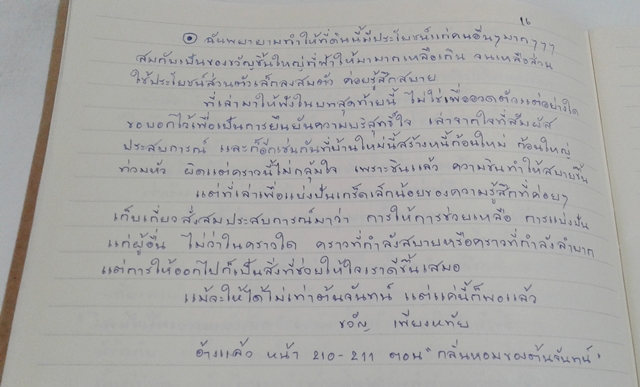 16
⦿ ฉันพยายามทำให้ที่ดินนี้มีประโยชน์แก่คนอื่นๆมากๆๆๆ
สมกับเป็นของขวัญชิ้นใหญ่ที่ฟ้าให้มามากเหลือเกิน จนเหลือส่วน
ใช้ประโยชน์ส่วนตัวเล็กลงสมตัว ค่อยรู้สึกสบาย
ที่เล่ามาให้ฟังในบทสุดท้ายนี้ ไม่ใช่เพื่ออวดตัวแต่อย่างใด
ขอบอกไว้เพื่อเป็นการยืนยันความบริสุทธิ์ใจ เล่าจากใจที่สัมผัส
ประสบการณ์ และก็อีกเช่นกันที่บ้านใหม่นี้สร้างหนี้ก้อนใหม่ ก้อนใหญ่
ท่วมหัว ผิดแต่คราวนี้ไม่กลุ้มใจ เพราะชินแล้ว ความชินทำให้สบายขึ้น
แต่ที่เล่าเพื่อแบ่งปันเกร็ดเล็กน้อยของความรู้สึกที่ค่อยๆ
เก็บเกี่ยวสั่งสมประสบการณ์มาว่า การให้การช่วยเหลือ การแบ่งปัน
แก่ผู้อื่น ไม่ว่าในคราวใด คราวที่กำลังสบายหรือคราวที่กำลังลำบาก
แต่การให้ออกไปก็เป็นสิ่งที่ช่วยให้ใจเราดีขึ้นเสมอ
แม้จะให้ได้ไม่เท่าต้นจันทน์ แต่แค่นี้ก็พอแล้ว
ขวัญ เพียงหทัย
อ้างแล้ว หน้า 210-211 ตอน "กลิ่นหอมของต้นจันทน์"